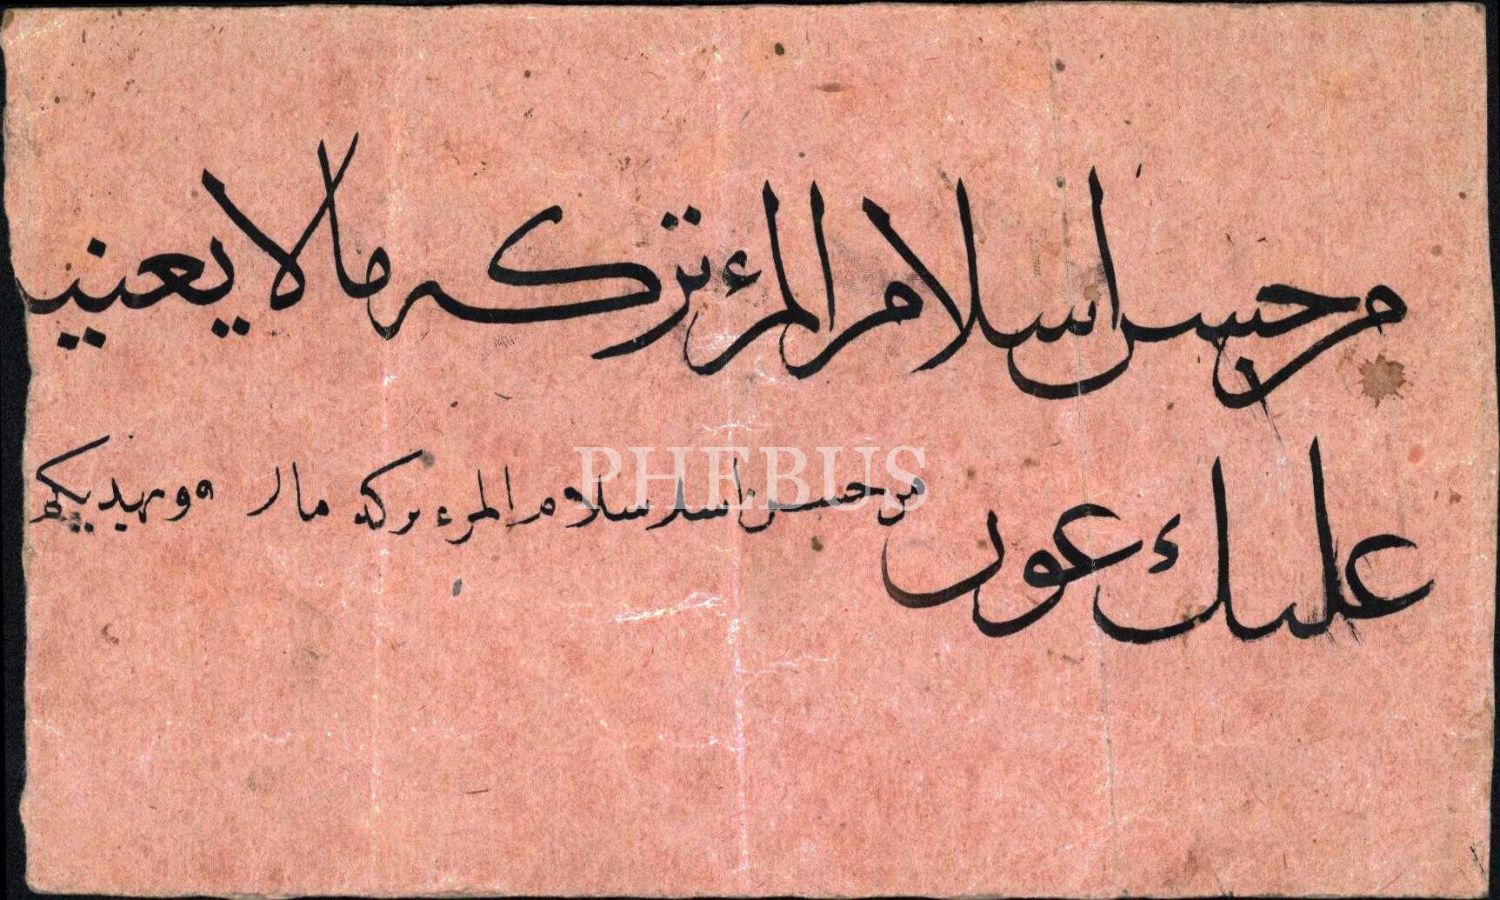 من حسن اسلام المرء تركه مالا يعنيه
عليك عون
من حسن اسد سلام المرء تركه مالا
PHEBUS